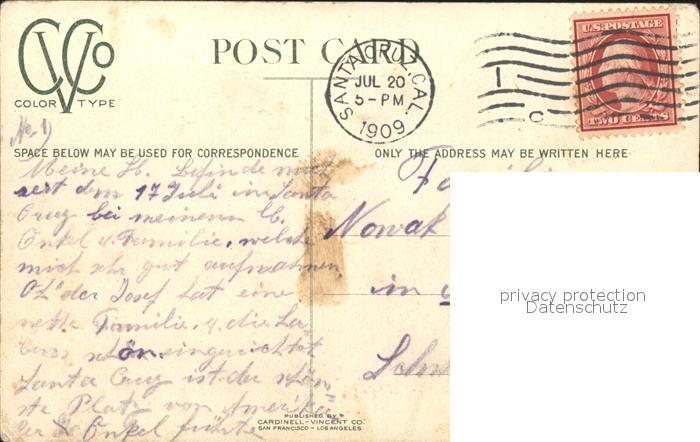 CVCo
COLOR TYPE
POST CARD
SANTA CRUZ, CAL.
JUL 20
5-PM
1909
U.S. POSTAGE
TWO CENTS
No 1)
SPACE BELOW MAY BE USED FOR CORRESPONDENCE
ONLY THE ADDRESS MAY BE WRITTEN HERE
Meine L. Befinde mich
seit dem 17 Juli in Santa
Cruz bei meinem lb.
Onkel u. Familie, welche
mich sehr gut aufnahmen.
der Josef hat eine
nette Familie, u. die
schön eingerichtet
Santa Cruz ist der schön-
ste Platz von Amerika
der Onkel führte
Nowak
in
privacy protection
Datenschutz
PUBLISHED BY
CARDINELL-VINCENT CO.
SAN FRANCISCO - LOS ANGELES